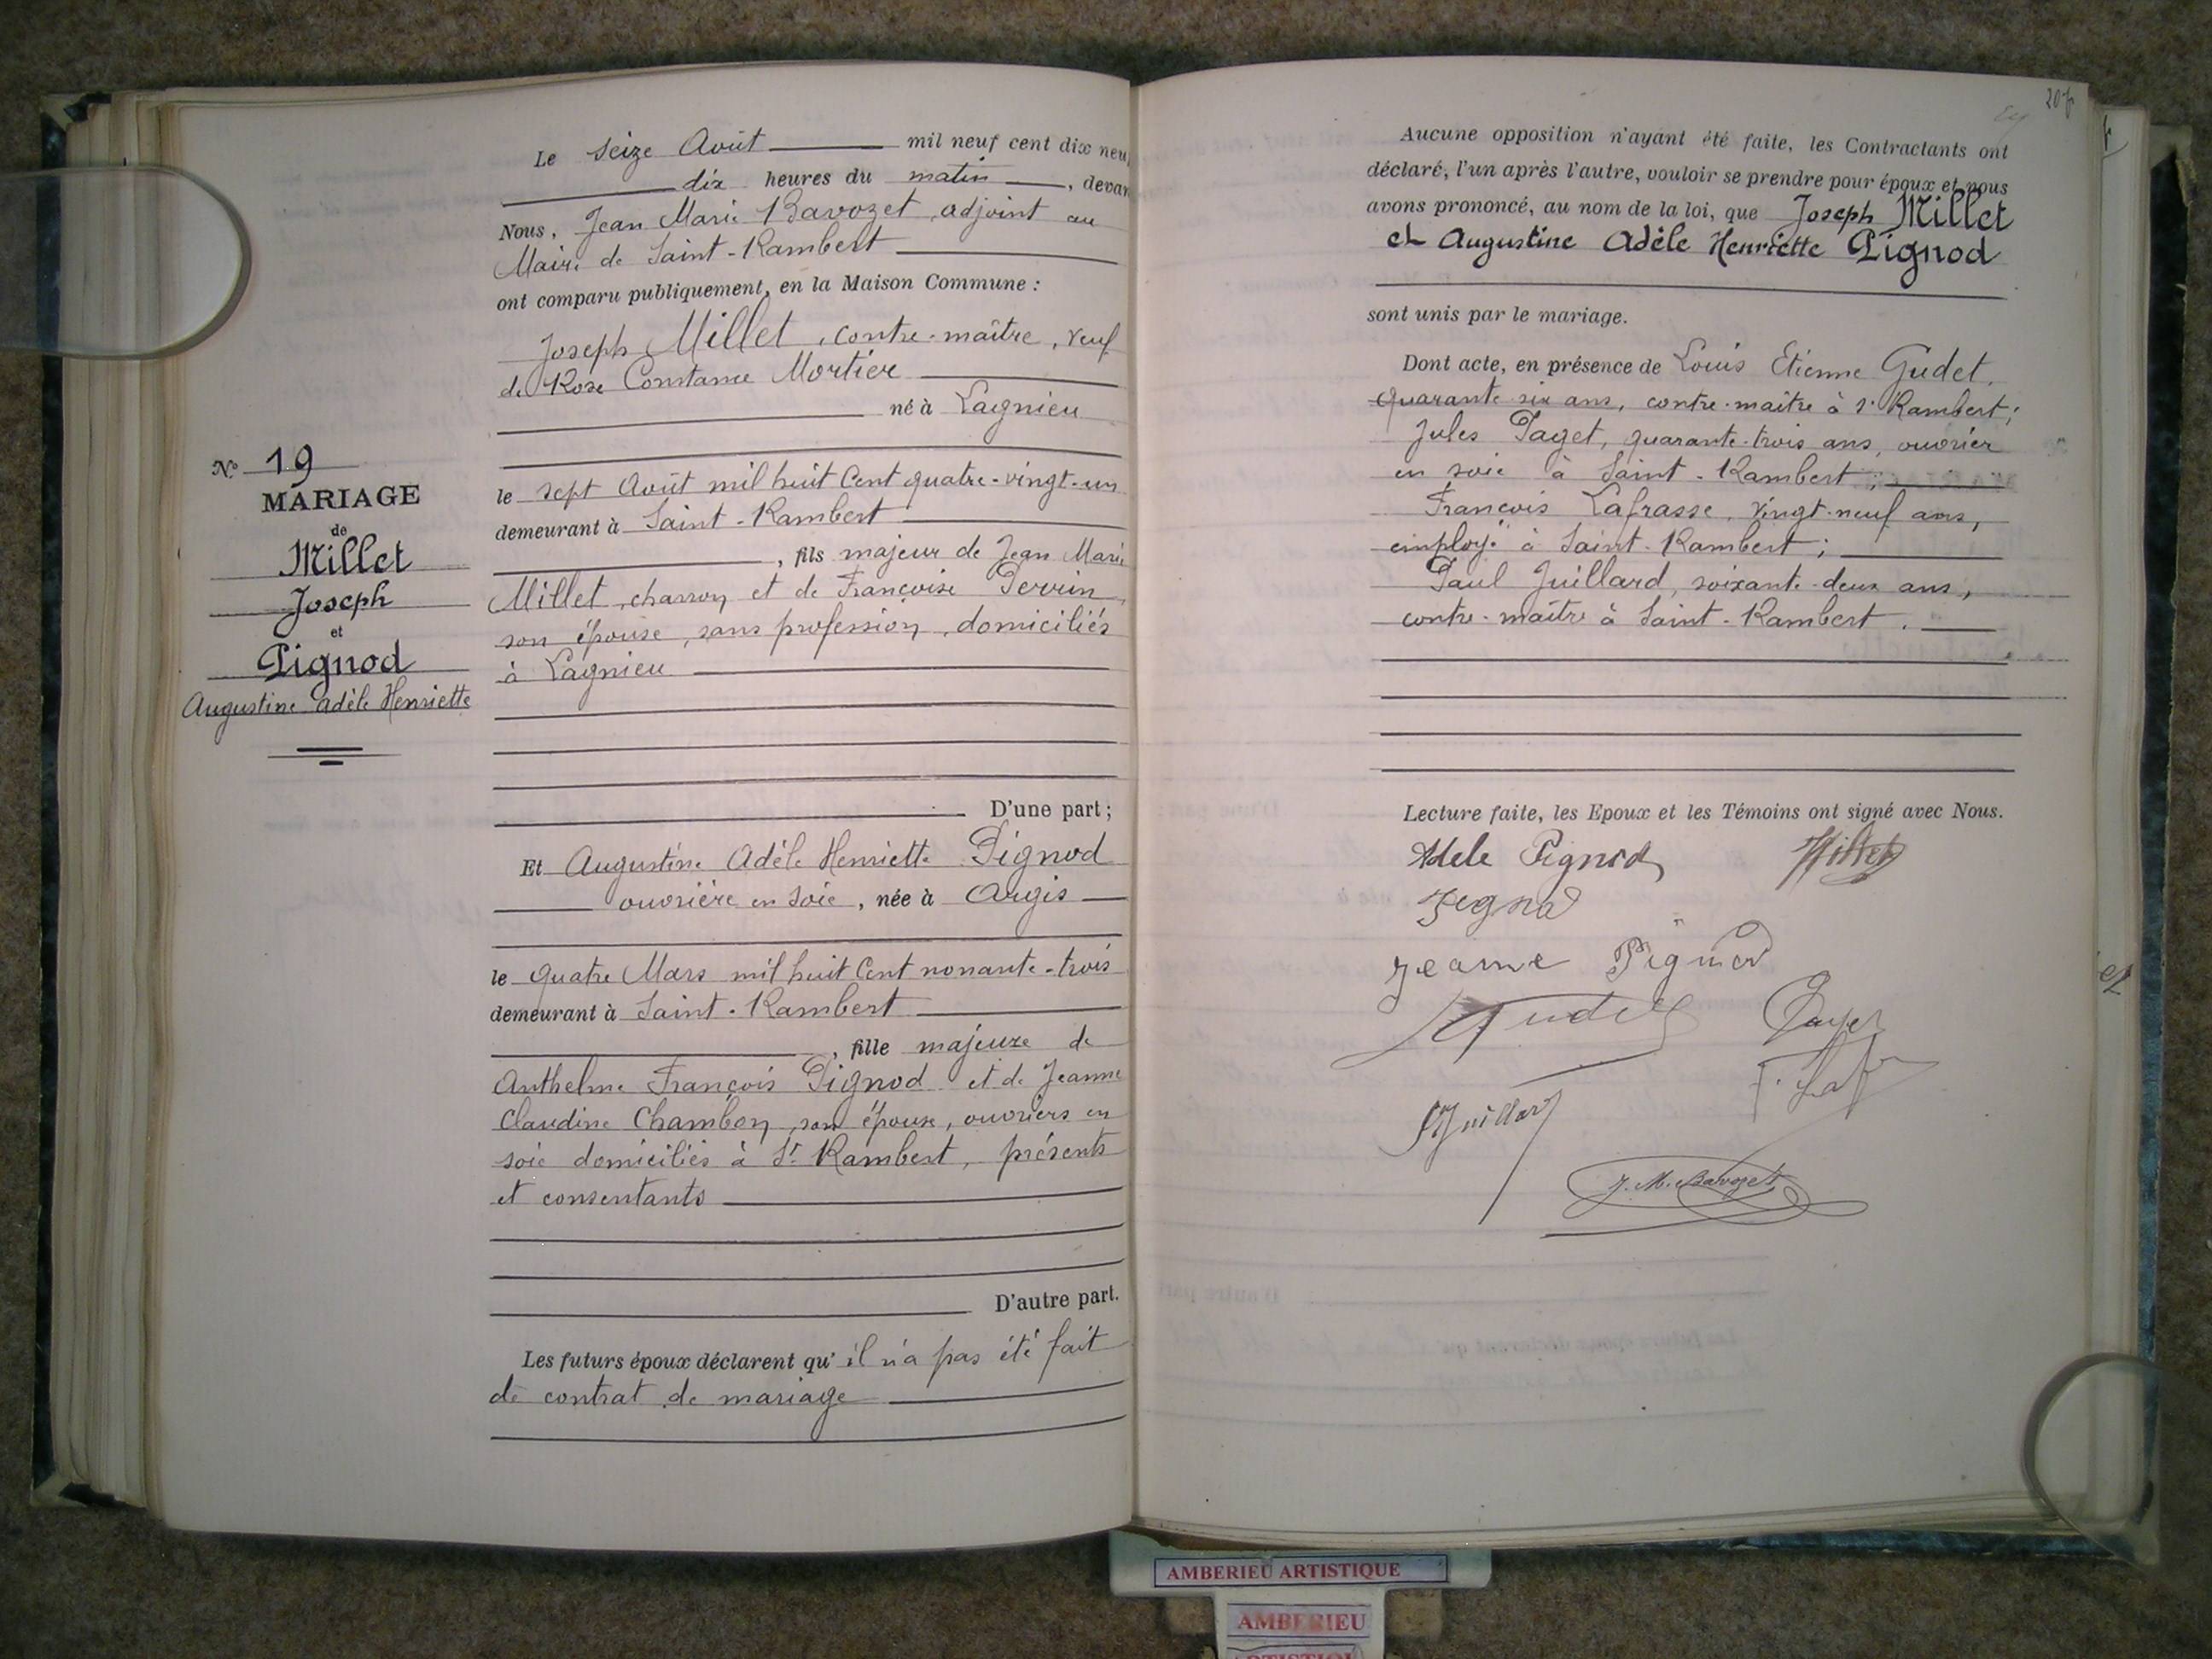 N° 19
MARIAGE
de
Millet
Joseph
et
Pignod
Augustine Adèle Henriette
Le seize Août mil neuf cent dix neu
dix heures du matin, devan
Nous, Jean Marie Bavozet, adjoint au
Maire de Saint-Rambert
ont comparu publiquement, en la Maison Commune :
Joseph Millet, contre-maître, veuf
de Rose Constance Mortier
né à Lagnieu
le sept Août mil huit Cent quatre-vingt-un
demeurant à Saint-Rambert
, fils majeur de Jean Marie
Millet, charron et de Françoise Perrin,
son épouse, sans profession, domiciliés
à Lagnieu
D'une part ;
Et Augustine Adèle Henriette Pignod
ouvrière en soie, née à Argis
le quatre Mars mil huit Cent nonante-trois
demeurant à Saint-Rambert
, fille majeure de
Anthelme François Pignod et de Jeanne
Claudine Chambon, son épouse, ouvriers en
soie domiciliés à St Rambert, présents
et consentants
D'autre part.
Les futurs époux déclarent qu'il n'a pas été fait
de contrat de mariage
207
Aucune opposition n'ayant été faite, les Contractants ont
déclaré, l'un après l'autre, vouloir se prendre pour époux et nous
avons prononcé, au nom de la loi, que Joseph Millet
et Augustine Adèle Henriette Pignod
sont unis par le mariage.
Dont acte, en présence de Louis Etienne Gudet,
quarante-six ans, contre-maître à St Rambert ;
Jules Paget, quarante-trois ans, ouvrier
en soie à Saint-Rambert ;
François Lafrasse, vingt-neuf ans,
employé à Saint-Rambert ;
Paul Juillard, soixante-deux ans,
contre-maître à Saint-Rambert.
Lecture faite, les Epoux et les Témoins ont signé avec Nous.
Adele Pignod Millet
Pignod
Jeanne Pignod
Gudet Paget
Juillard
J. M. Bavozet
AMBERIEU ARTISTIQUE
AMBERIEU